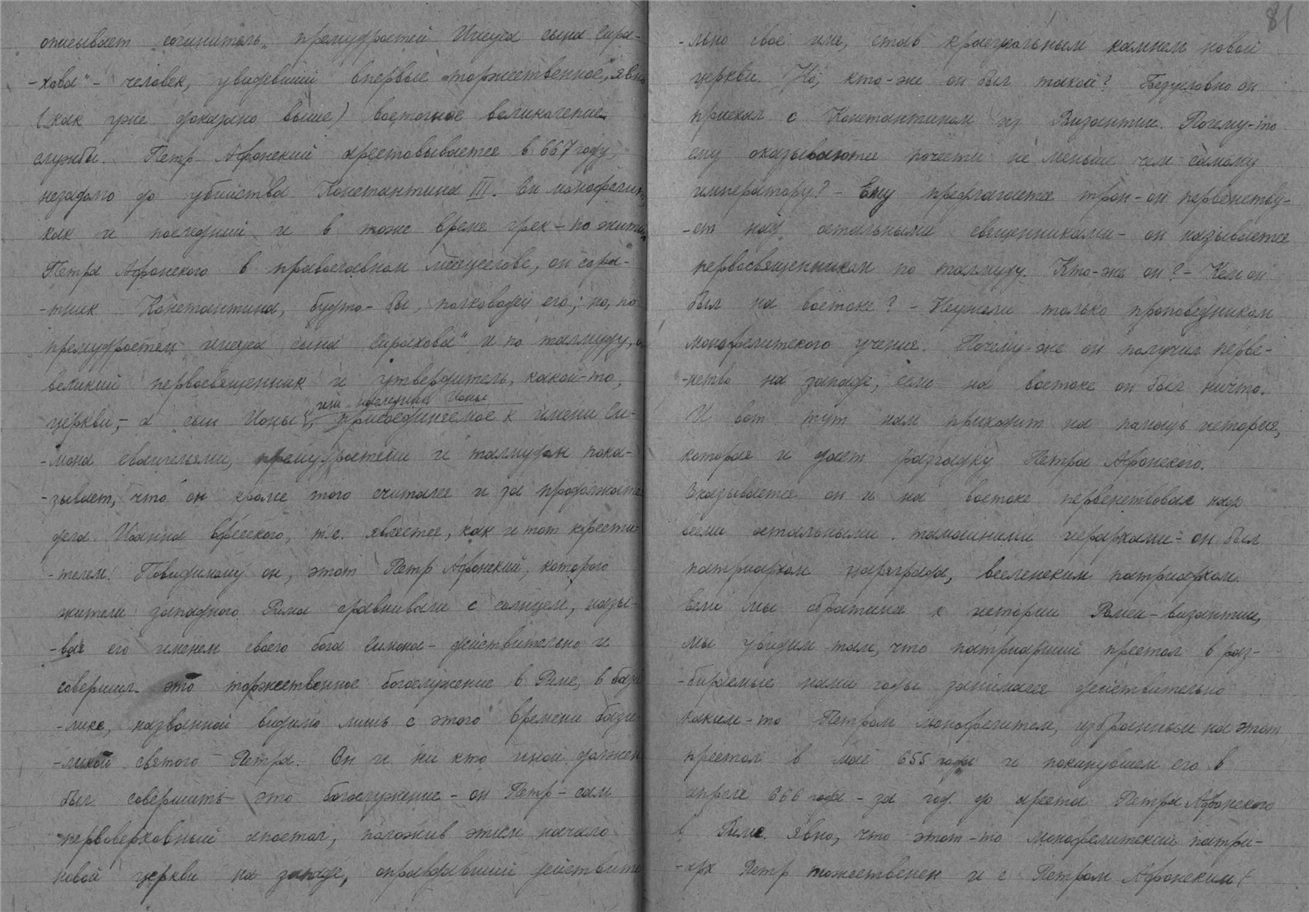 описывает сочинитель „премудростей Иисуса сына Сира-
-хова" - человек, увидевший впервые „торжественное", явно
(как уже доказано выше) восточное великолепие
службы. Петр Афонский арестовывается в 667 году,
незадолго до убийства Константина III. Он монофелит,
как и последний и в тоже время грек - по житию
Петра Афонского в православном месяцеслове, он сорат-
-тник Константина, будто-бы полководец его; но, по
премудростям Иисуса сына Сирахова" и по талмуду, он
великий первосвященник и утвердитель, какой-то,
церкви, - а сын Ионы
или наследник Ионы
присоединяемое к имени Си-
-мона евангельями, премудростями и талмудом пока-
-зывает, что он кроме того считался и за продолжателя
дела Иоанна Ефесского, т.е. является, как и тот крести-
-телем! Повидимому он, этот Петр Афонский, которого
жители западного Рима сравнивали с солнцем, назы-
-вая его именем своего бога Симона - действительно и
совершил это торжественное богослужение в Риме, в бази-
-лике, названной видимо лишь с этого времени бази-
-ликой святого Петра. Он и ни кто иной должен
был совершить это богослужение - он Петр - сам
первоверховный апостол, положив этим начало
новой церкви на западе, оправдавший действите-
81
-льно свое имя, став краеугольным камнем новой
церкви. Но, кто-же он был такой? Безусловно он
приехал с Константином из Византии. Почему-то
ему оказываются почести не меньше чем самому
императору? - Ему предлагается трон - он первенству-
-ет над остальными священниками - он называется
первосвященником по талмуду. Кто-же он? - Кем он
был на востоке? - Неужели только проповедником
монофелитского учения. Почему-же он получил перве-
-нство на западе, если на востоке он был ничто.
И вот тут нам приходит на помощь история,
которая и дает разгадку Петра Афонского.
Оказывается он и на востоке первенствовал над
всеми остальными тамошними иерархами - он был
патриархом Цареграда, вселенским патриархом.
Если мы обратимся к истории Ромеи-Византии,
мы увидим там, что патриарший престол в раз-
-бираемые нами годы занимался действительно
каким-то Петром монофелитом, избранным на этот
престол в мае 655 года и покинувшем его в
апреле 666 года - за год до ареста Петра Афонского
в Риме. Явно, что этот-то монофелитский патри-
-арх Петр тожественен и с Петром Афонским (